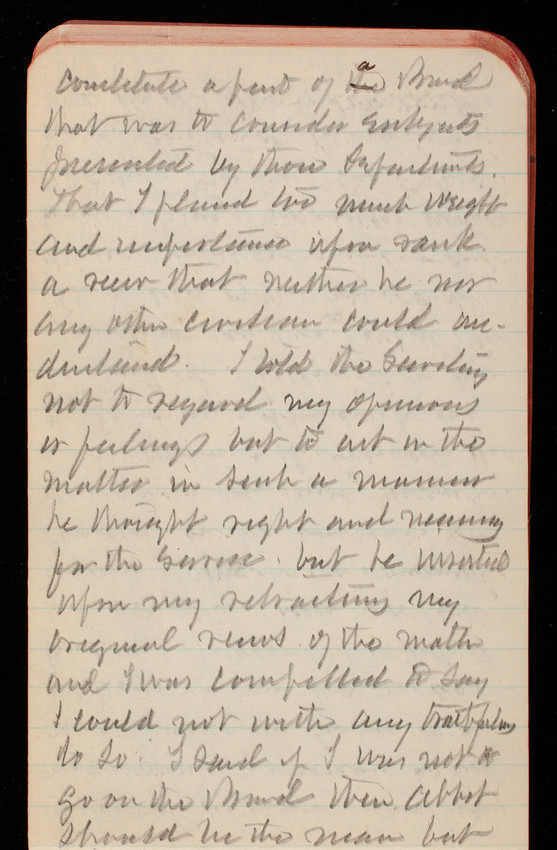 constitute a part of a Board
that was to consider subjects
presented by those Departments.
That I placed too much weight
and importance upon rank
a view that neither he nor
any other civilian could un-
derstand. I told the Secretary
not to regard my opinions
or feelings but to act in the
matter in such a manner
he thought right and necessary
for the service. but he insisted
upon my retracting my
original views of the matter
and I was compelled to say
I could not with any truthfulness
do so. I said if I was not to
go on the Board then Abbot
should be the man but